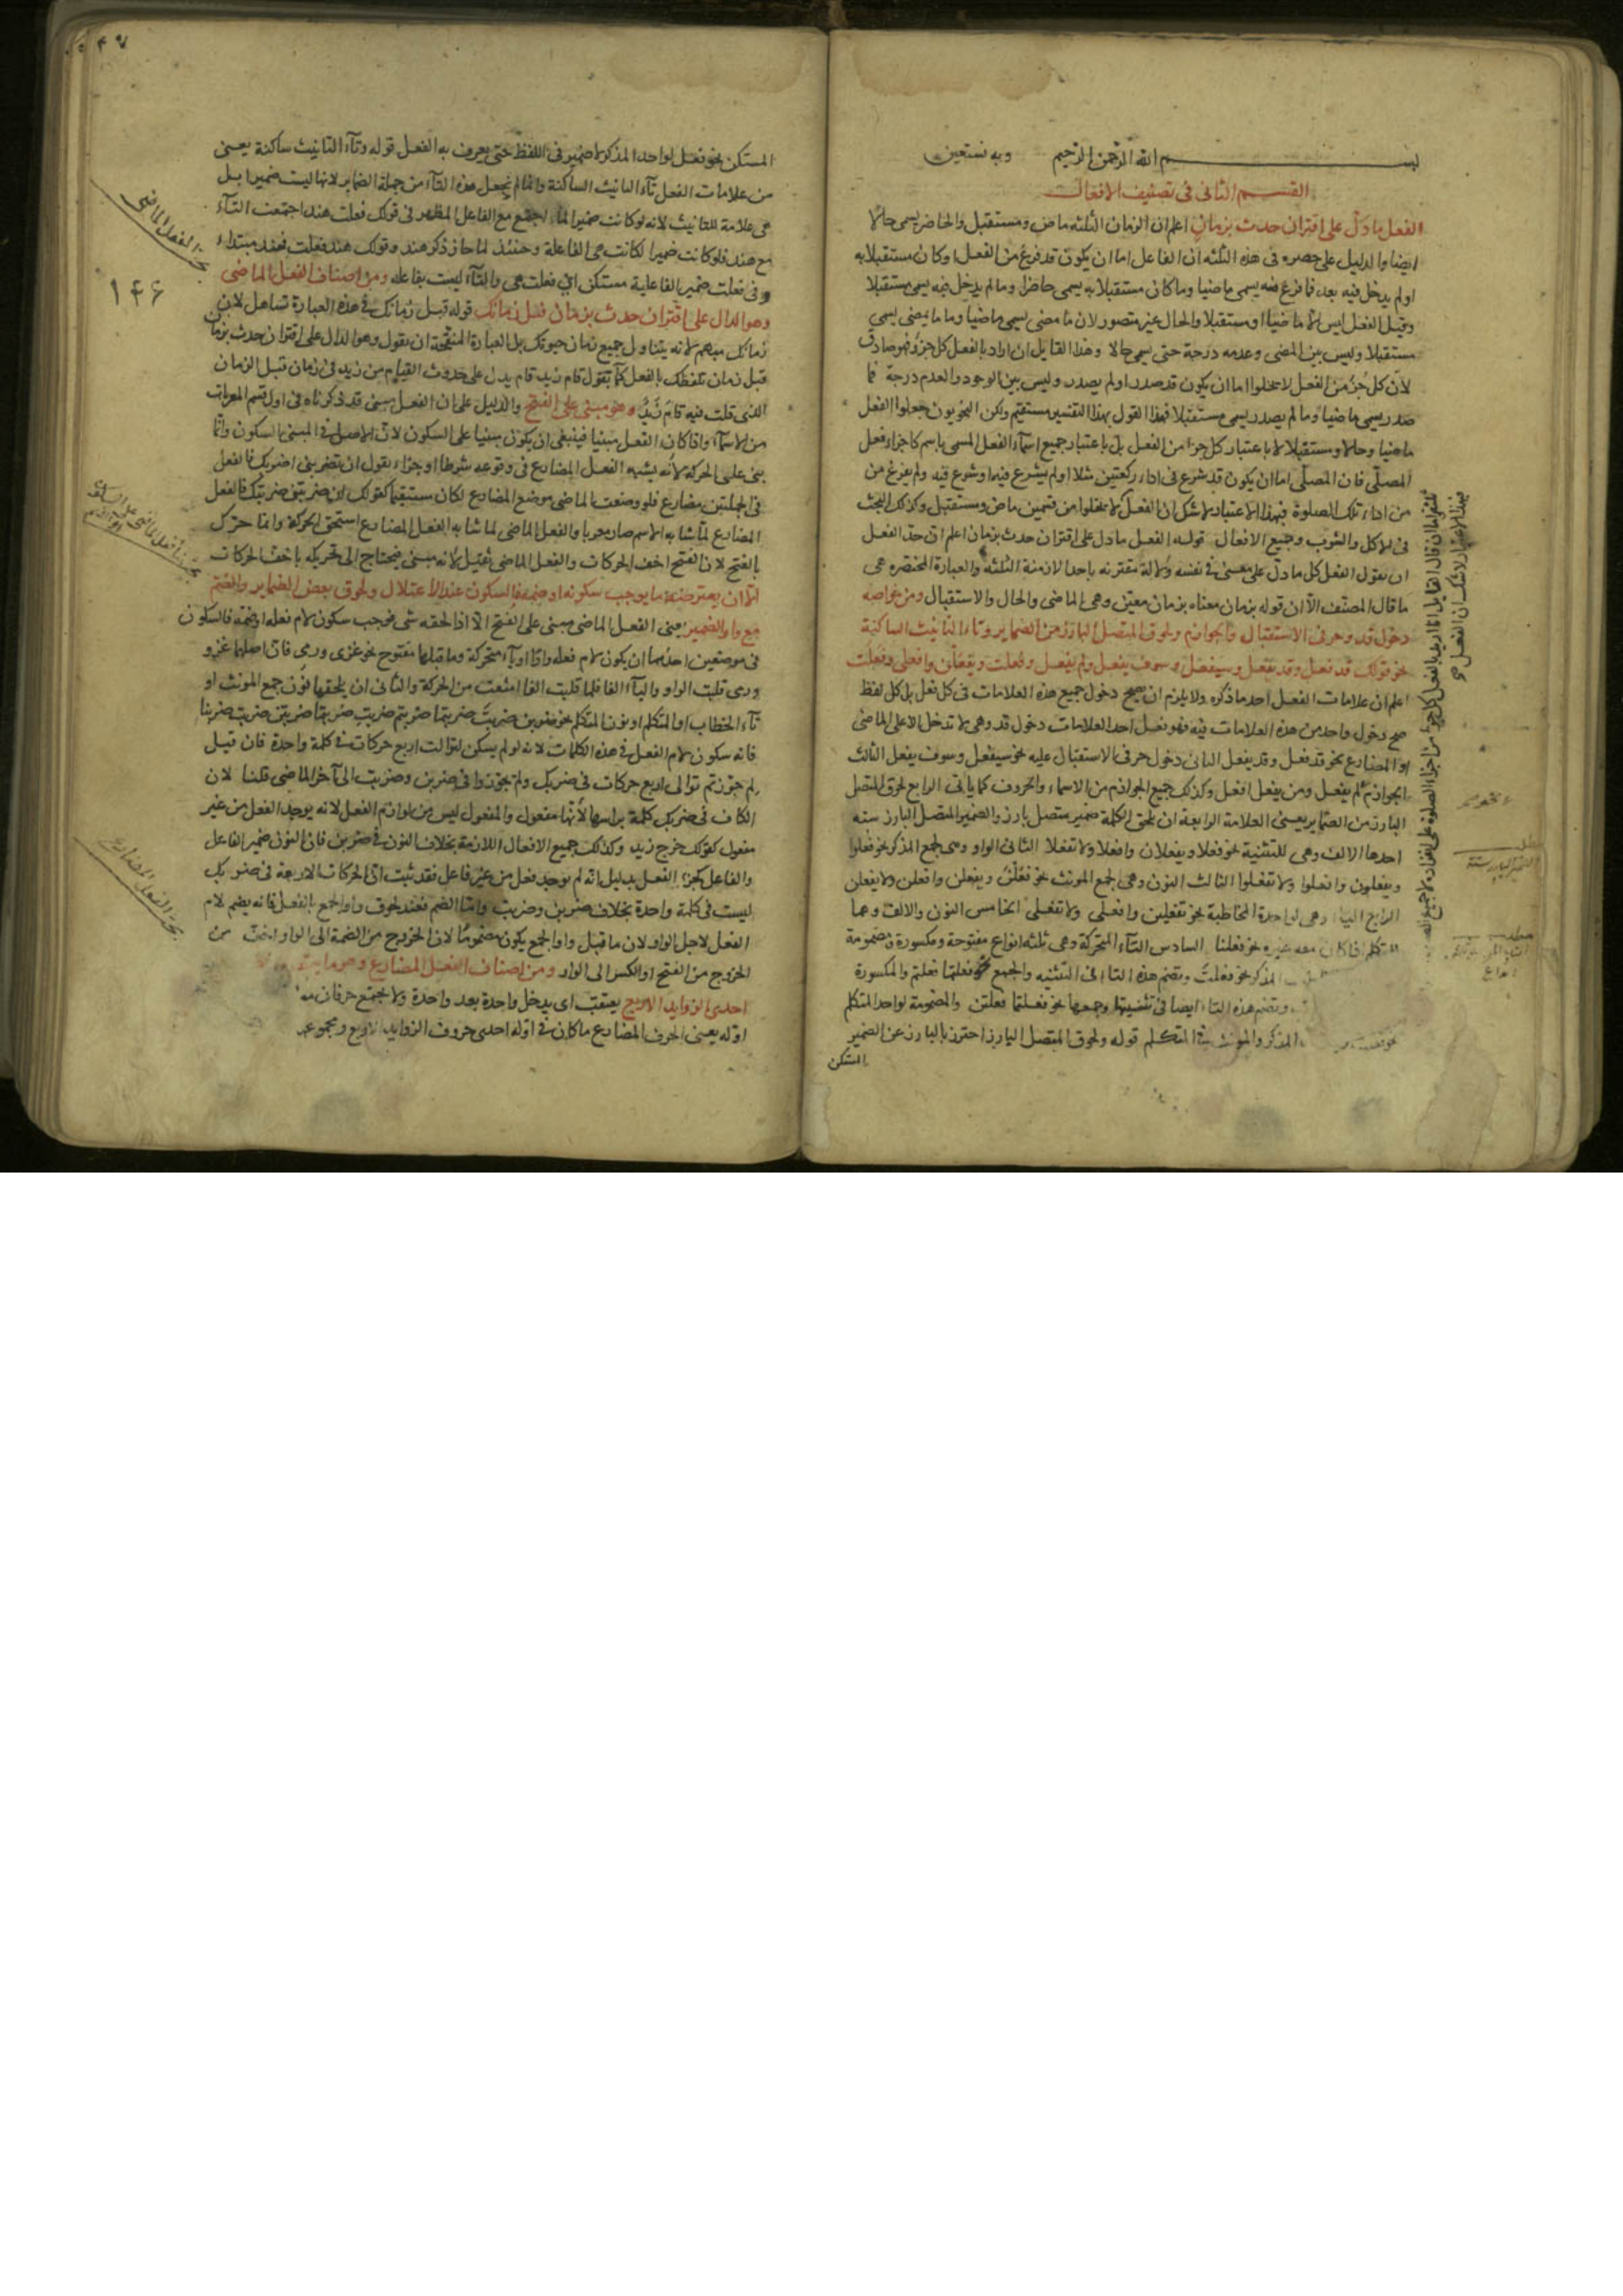 بسم الله الرحمن الرحيم وبه نستعين
القسم الثاني في تصنيف الافعال
الفعل ما دل على اقتران حدث بزمان اعلم ان الزمان الثلثه ماض ومستقبل والحاضر يسمى حالا
ايضا والدليل على حصره في هذه الثلثه ان الفاعل اما ان يكون قد فرغ من الفعل او كان مستقبلا به
او لم يدخل فيه بعد فما فرغ منه يسمى ماضيا وما كان مستقبلا به يسمى حاضرا وما لم يدخل فيه يسمى مستقبلا
وقيل الفعل ليس الا ماضيا او مستقبلا والحال غير متصور لان ما مضى يسمى ماضيا وما ما يمضى يسمى
مستقبلا وليس بين المضى وعدمه درجة حتى يسمى حالا وهذا القايل ان اراد بالفعل كل جزؤ فهو صادق
لان كل جزء من الفعل لا يخلوا اما ان يكون قد صدر او لم يصدر وليس بين الوجود والعدم درجة فما
صدر يسمى ماضيا وما لم يصدر يسمى مستقبلا فهذا القول بهذا التفسير مستقيم ولكن النحويون جعلوا الفعل
ماضيا وحالا ومستقبلا لا باعتبار كل جزء من الفعل بل باعتبار جميع اجزآء الفعل المسمى باسم كاجزاء فعل
المصلى فان المصلى اما ان يكون قد شرع في اداء ركعتين مثلا او لم يشرع فيه او شرع فيه ولم يفرغ من
من اداء تلك الصلوة فبهذا الاعتبار لا شك ان الفعل لا يخلوا من قسمين ماض ومستقبل وكذلك البحث
في الاكل والشرب وجميع الافعال قوله الفعل ما دل على اقتران حدث بزمان اعلم ان حد الفعل
ان يقول الفعل كل ما دل على معنى في نفسه دلالة مقترنه باحد الازمنة الثلثة والعبارة المختصره هى
ما قال المصنف الا ان قوله بزمان معناه بزمان معين وهى الماضى والحال والاستقبال ومن خواصه
دخول قد وحرفى الاستقبال والجوازم ولحوق المتصل البارز من الضماير وتاء التانيث الساكنة
نحو قولك قد فعل وقد يفعل وسيفعل وسوف يفعل ولم يفعل وفعلت ويفعلن وافعلى وفعلت
اعلم ان علامات الفعل احد ما ذكره ولا يلزم ان يصح دخول جميع هذه العلامات في كل فعل بل كل لفظ
صح دخول واحد من هذه العلامات فيه فهو فعل احد العلامات دخول قد وهى لا تدخل الا على الماضى
او المضارع نحو قد فعل وقد يفعل الثانى دخول حرفى الاستقبال عليه نحو سيفعل وسوف يفعل الثالث
الجوازم نحو لم يفعل ومن يفعل افعل وكذلك جميع الجوازم من الاسماء والحروف كما ياتى الرابع لحوق المتصل
البارز من الضماير يعنى العلامة الرابعة ان يلحق الكلمة ضمير متصل بارز والضمير المتصل البارز سته
احدها الالف وهى للتثنية نحو فعلا ويفعلان وافعلا ولا تفعلا الثانى الواو وهى لجمع المذكر نحو فعلوا
ويفعلون وافعلوا ولا تفعلوا الثالث النون وهى لجمع المونث نحو فعلن ويفعلن وافعلن ولا يفعلن
الرابع الياء وهى لواحدة المخاطبة نحو تفعلين وافعلى ولا تفعلى الخامس النون والالف وهما
للمتكلم اذا كان معه غيره نحو فعلنا السادس التآء المتحركة وهى ثلثه انواع مفتوحة ومكسورة ومضمومة
المذكر نحو فعلت وتضم هذه التاء في التثنيه والجمع نحو فعلتما فعلتم والمكسورة
وتضم هذه التاء ايضا في تثنيتها وجمعها نحو فعلتما فعلتن والمضمومة لواحد المتكلم
المذكر والمونث في المتكلم قوله ولحوق المتصل البارز احترز بالبارز عن الضمير
المستكن
المستكن نحو فعل لواحد المذكر لا ضمير في اللفظ حتى يعرف به الفعل قوله وتآء التانيث ساكنة يعنى
من علامات الفعل تآء التانيث الساكنة وانما لم يجعل هذه التآء من جملة الضماير لانها ليست ضميرا بل
هى علامة للتانيث لانه لو كانت ضميرا لما اجتمع مع الفاعل المظهر في قولك فعلت هند اجتمعت التآء
مع هند فلو كانت ضميرا لكانت هى الفاعلة وحينئذ لما جاز ذكر هند وقولك هند فعلت فهند مبتداء
وفى فعلت ضمير الفاعلية مستكن اى فعلت هى والتآء ليست بفاعله ومن اصناف الفعل الماضى
وهو الدال على اقتران حدث بزمان قبل زمانك قوله قبل زمانك في هذه العبارة تساهل لان
زمانك مبهم لانه يتناول جميع زمان حيوتك بل العبارة المنقحة ان يقول وهو الدال على اقتران حدث بزمان
قبل زمان تلفظك بالفعل كما تقول قام زيد قام يدل على حدوث القيام من زيد في زمان قبل الزمان
الذى قلت فيه قام زيد وهو مبنى على الفتح والدليل على ان الفعل مبنى قد ذكرناه في اول قسم المعربات
من الاسمآء واذا كان الفعل مبنيا فينبغى ان يكون مبنيا على السكون لان الاصل في المبنى السكون وانما
بنى على الحركة لانه يشبه الفعل المضارع في وقوعه شرطا او جزاء تقول ان تضربنى اضربك فالفعل
في الجملتين مضارع فلو وضعت الماضى موضع المضارع لكان مستقيما كقولك ان ضربتنى ضربتك فالفعل
المضارع لما شابه الاسم صار معربا والفعل الماضى لما شابه الفعل المضارع استحق الحركة وانما حرك
بالفتح لان الفتح اخف الحركات والفعل الماضى ثقيل لانه مبنى فيحتاج الى تحريكه باخف الحركات
الا ان يعترضه ما يوجب سكونه او ضمه فالسكون عند الاعتلال ولحوق بعض الضماير والضم
مع واو الضمير يعنى الفعل الماضى مبنى على الفتح الا اذا لحقه شى فوجب سكون لام فعله او ضمه فالسكون
في موضعين احدهما ان يكون لام فعله واوا او يآء متحركة وما قبلها مفتوح نحو غزى ورمى فان اصلهما غزو
ورمى قلبت الواو واليآء الفا فلما قلبت الفا امتنعت من الحركة والثانى ان يلحقها نون جمع المونث او
تآء الخطاب او المتكلم او نون المتكلم نحو ضربن ضربت ضربتما ضربتم ضربت ضربتما ضربتن ضربت ضربنا
فانه سكون لام الفعل في هذه الكلمات لانه لو لم يسكن لتوالت اربع حركات في كلمة واحدة فان قيل
لم جوزتم توالى اربع حركات في ضربك ولم تجوزوا في ضربن وضربت الى آخر الماضى قلنا لان
الكاف في ضربك كلمة براسها لانها مفعول والمفعول ليس من لوازم الفعل لانه يوجد الفعل من غير
مفعول كقولك خرج زيد وكذلك جميع الافعال اللازمة بخلاف النون في ضربن فان النون ضمير الفاعل
والفاعل كجزء الفعل بدليل انه لم يوجد فعل من غير فاعل فقد ثبت ان الحركات الاربعة في ضربك
ليست في كلمة واحدة بخلاف ضربن وضربت واما الضم فعند لحوق واو الجمع بالفعل فانه يضم لام
الفعل لاجل الواو لان ما قبل واو الجمع يكون مضموما لان الخروج من الضمة الى الواو اخف من
الخروج من الفتح او الكسر الى الواو ومن اصناف الفعل المضارع وهو ما
احدى الزوايد الاربع يعتقب اى يدخل واحدة بعد واحدة ولا يجتمع حرفان
اوله يعنى الحرف المضارع ما كان في اوله احدى حروف الزوايد الاربع ومجموعه
الفعل الماضى
١٤٦
الفعل المضارع